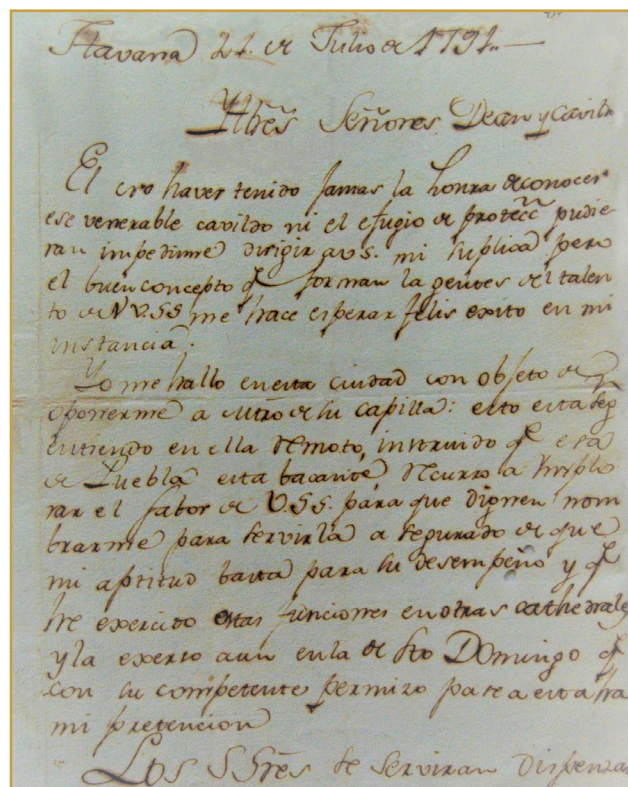 Havana 21. de Julio de 1791.
Yltrēs Señores Dean y Cavildo
El cro haver tenido Jamas la honra de conocer
ese venerable cavildo ni el efugio de protecc̃ pudie
ran impedirme dirigir a v.s. mi suplica pero
el buen concepto q̃ forman la gentes del talen
to de V.SS me hace esperar felis exito en mi
instancia.
Yo me hallo en esta ciudad con objeto de
oponerme a mtro de su capilla: esto esta seg
entiendo en ella remoto, instruido q̃ esa
de Puebla esta bacante, recurro a Ymplo
rar el fabor de V.SS. para que dignen nom
brarme para servirla asegurado de que
mi aptitud basta para su desempeño y q̃
he exercido estas funciones en otras cathedrales
y la exerto aun en la de Sto Domingo q̃
con su competente permizo pase a esta ha
mi pretencion
Los SSrēs se serviran dispensar